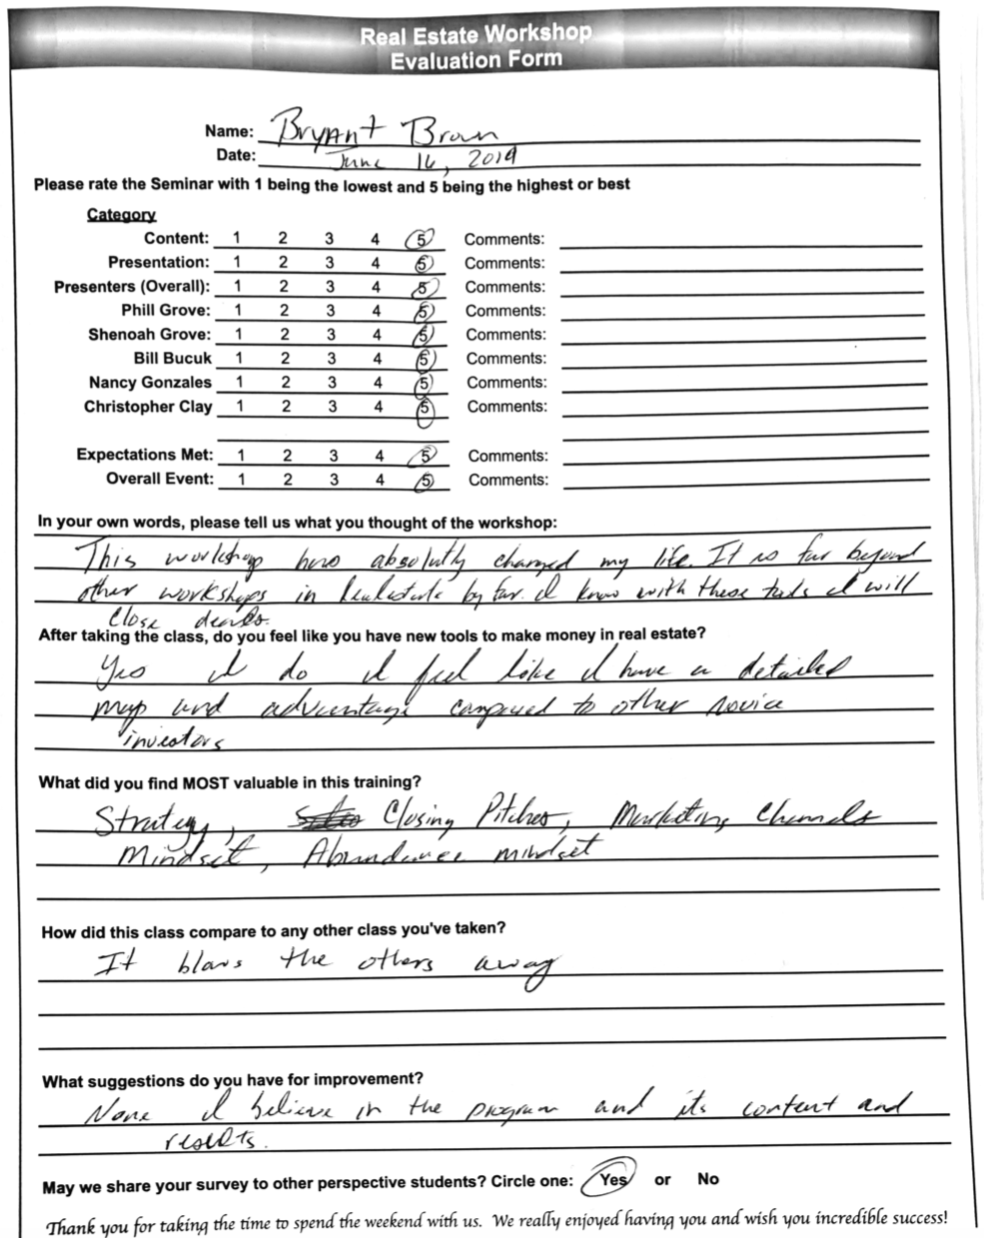 Real Estate Workshop
Evaluation Form
Name: Bryant Brown
Date: June 16, 2019
Please rate the Seminar with 1 being the lowest and 5 being the highest or best
Category
Content: 1 2 3 4 5 Comments:
Presentation: 1 2 3 4 5 Comments:
Presenters (Overall): 1 2 3 4 5 Comments:
Phill Grove: 1 2 3 4 5 Comments:
Shenoah Grove: 1 2 3 4 5 Comments:
Bill Bucuk 1 2 3 4 5 Comments:
Nancy Gonzales 1 2 3 4 5 Comments:
Christopher Clay 1 2 3 4 5 Comments:
Expectations Met: 1 2 3 4 5 Comments:
Overall Event: 1 2 3 4 5 Comments:
In your own words, please tell us what you thought of the workshop:
This workshop has absolutly changed my life. It is far beyond
other workshops in by far. I know with these tools I will
Close deals.
After taking the class, do you feel like you have new tools to make money in real estate?
Yes I do I feel like I have a detailed
map and advantage compared to other novice
investors
What did you find MOST valuable in this training?
Strategy, Closing Pitches, Marketing Channels
Mindset, Abundance mindset
How did this class compare to any other class you've taken?
It blows the others away
What suggestions do you have for improvement?
None I believe in the program and its content and
results.
May we share your survey to other perspective students? Circle one: Yes or No
Thank you for taking the time to spend the weekend with us. We really enjoyed having you and wish you incredible success!